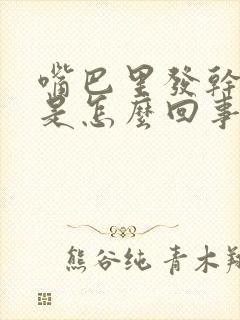 嘴巴里發幹
是怎麼回事
熊谷纯 青木翔